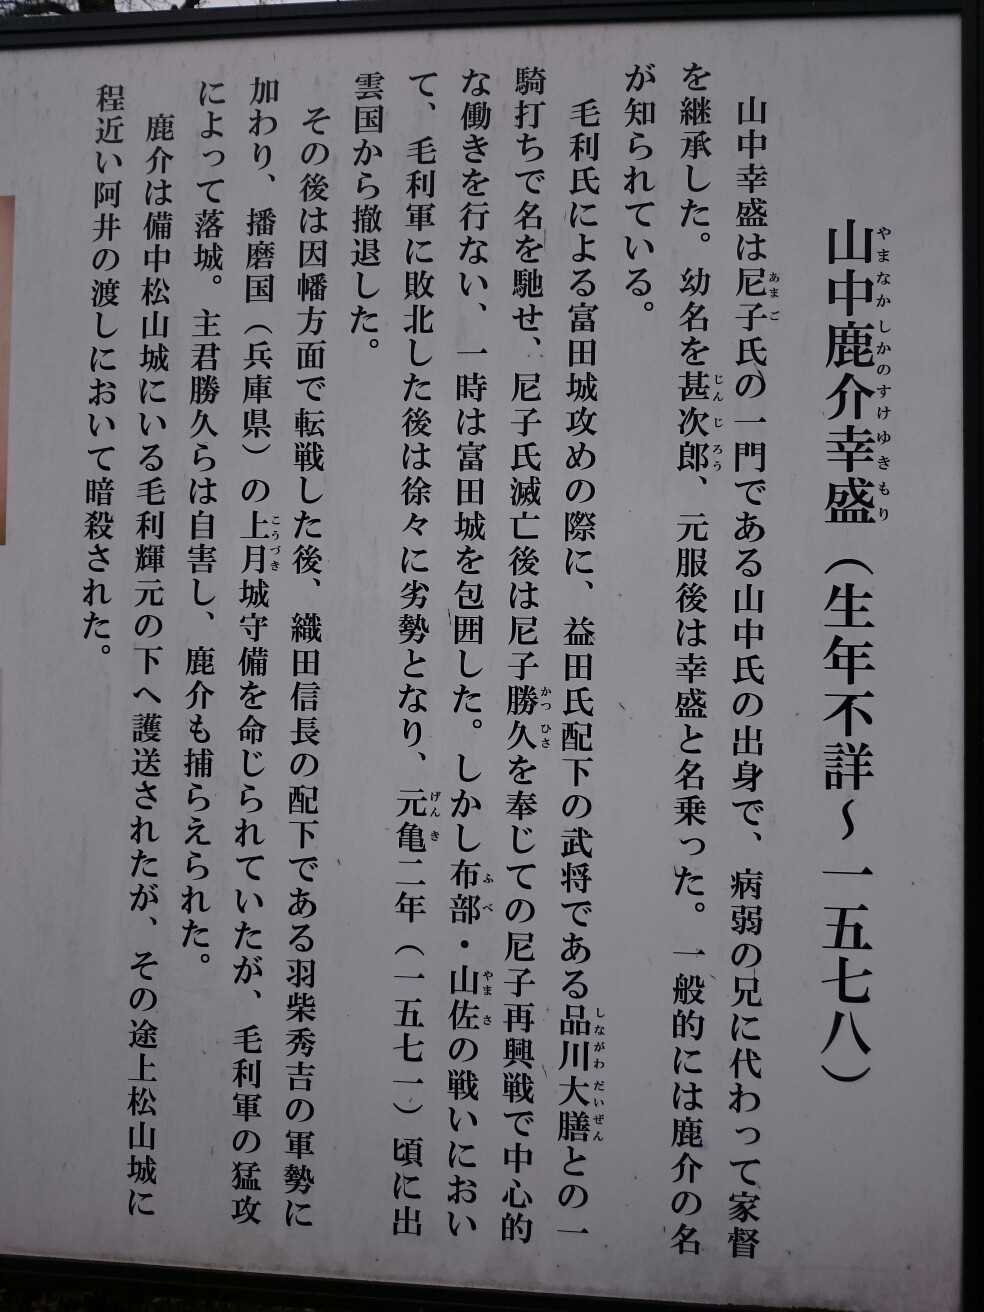 山中鹿介幸盛（生年不詳～一五七八）
やまなかしかのすけゆきもり
山中幸盛は尼子氏の一門である山中氏の出身で、病弱の兄に代わって家督
あまご
を継承した。幼名を甚次郎、元服後は幸盛と名乗った。一般的には鹿介の名
じんじろう
が知られている。
毛利氏による富田城攻めの際に、益田氏配下の武将である品川大膳との一
しながわだいぜん
騎打ちで名を馳せ、尼子氏滅亡後は尼子勝久を奉じての尼子再興戦で中心的
かつひさ
な働きを行ない、一時は富田城を包囲した。しかし布部・山佐の戦いにおい
ふべ やまさ
て、毛利軍に敗北した後は徐々に劣勢となり、元亀二年（一五七一）頃に出
げんき
雲国から撤退した。
その後は因幡方面で転戦した後、織田信長の配下である羽柴秀吉の軍勢に
加わり、播磨国（兵庫県）の上月城守備を命じられていたが、毛利軍の猛攻
こうづき
によって落城。主君勝久らは自害し、鹿介も捕らえられた。
鹿介は備中松山城にいる毛利輝元の下へ護送されたが、その途上松山城に
程近い阿井の渡しにおいて暗殺された。